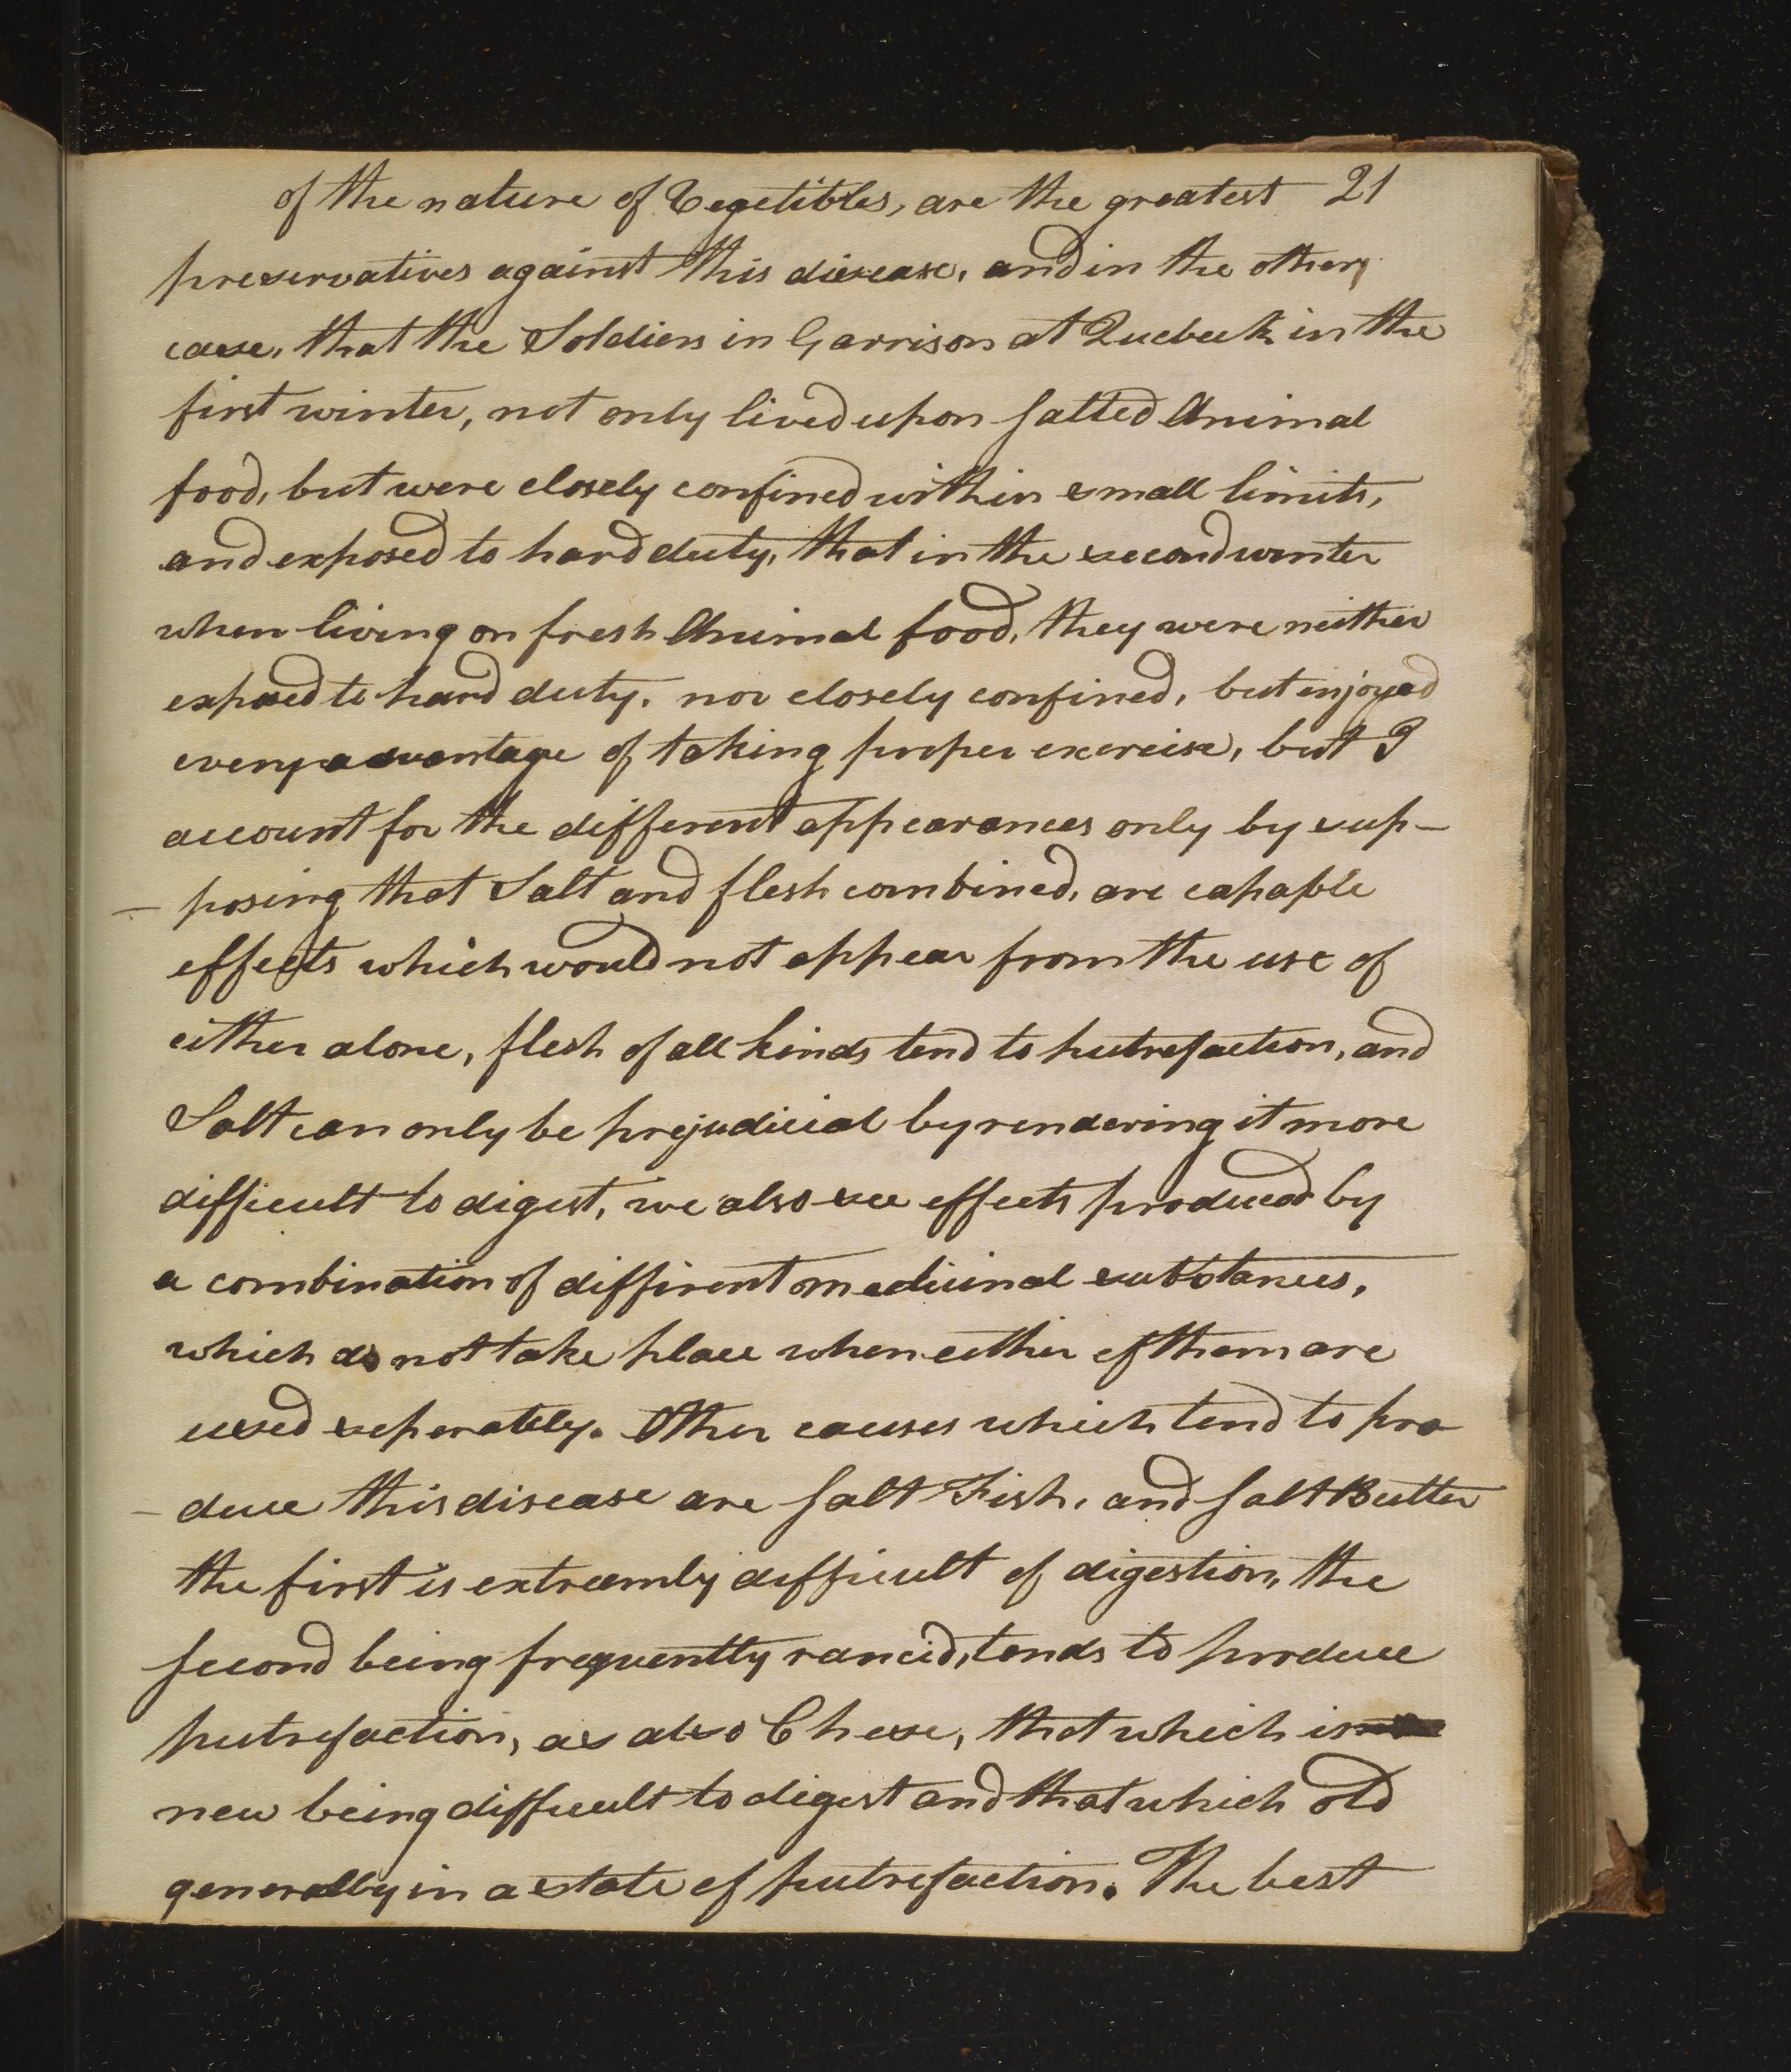 of the nature of Vegetibles, are the greatest 21
preservatives against this disease, and in the other
case, that the Soldiers in Garrison at Quebeck in the
first winter, not only lived upon salted Animal
food, but were closely confined within small limits,
and exposed to hard duty, that in the second winter
when living on fresh Animal food, they were neither
exposed to hard duty, nor closely confined, but enjoyed
every advantage of taking proper exercise, but I
account for the different appearances only by sup-
- posing that Salt and flesh combined, are capable
effects which would not appear from the use of
either alone, flesh of all kinds tend to putrefaction, and
Salt can only be prejudicial by rendering it more
difficult to digest, we also see effects produced by
a combination of diffirent medicinal substances,
which do not take place when either of them are
used seperately. Other causes which tend to pro
- duce this disease are salt Fish, and salt Butter
the first is extreemly difficult of digestion, the
second being frequently rancid, tends to produce
putrefaction, as also Cheese, that which is
new being difficult to digest and that which old
generally in a state of putrefaction. The best